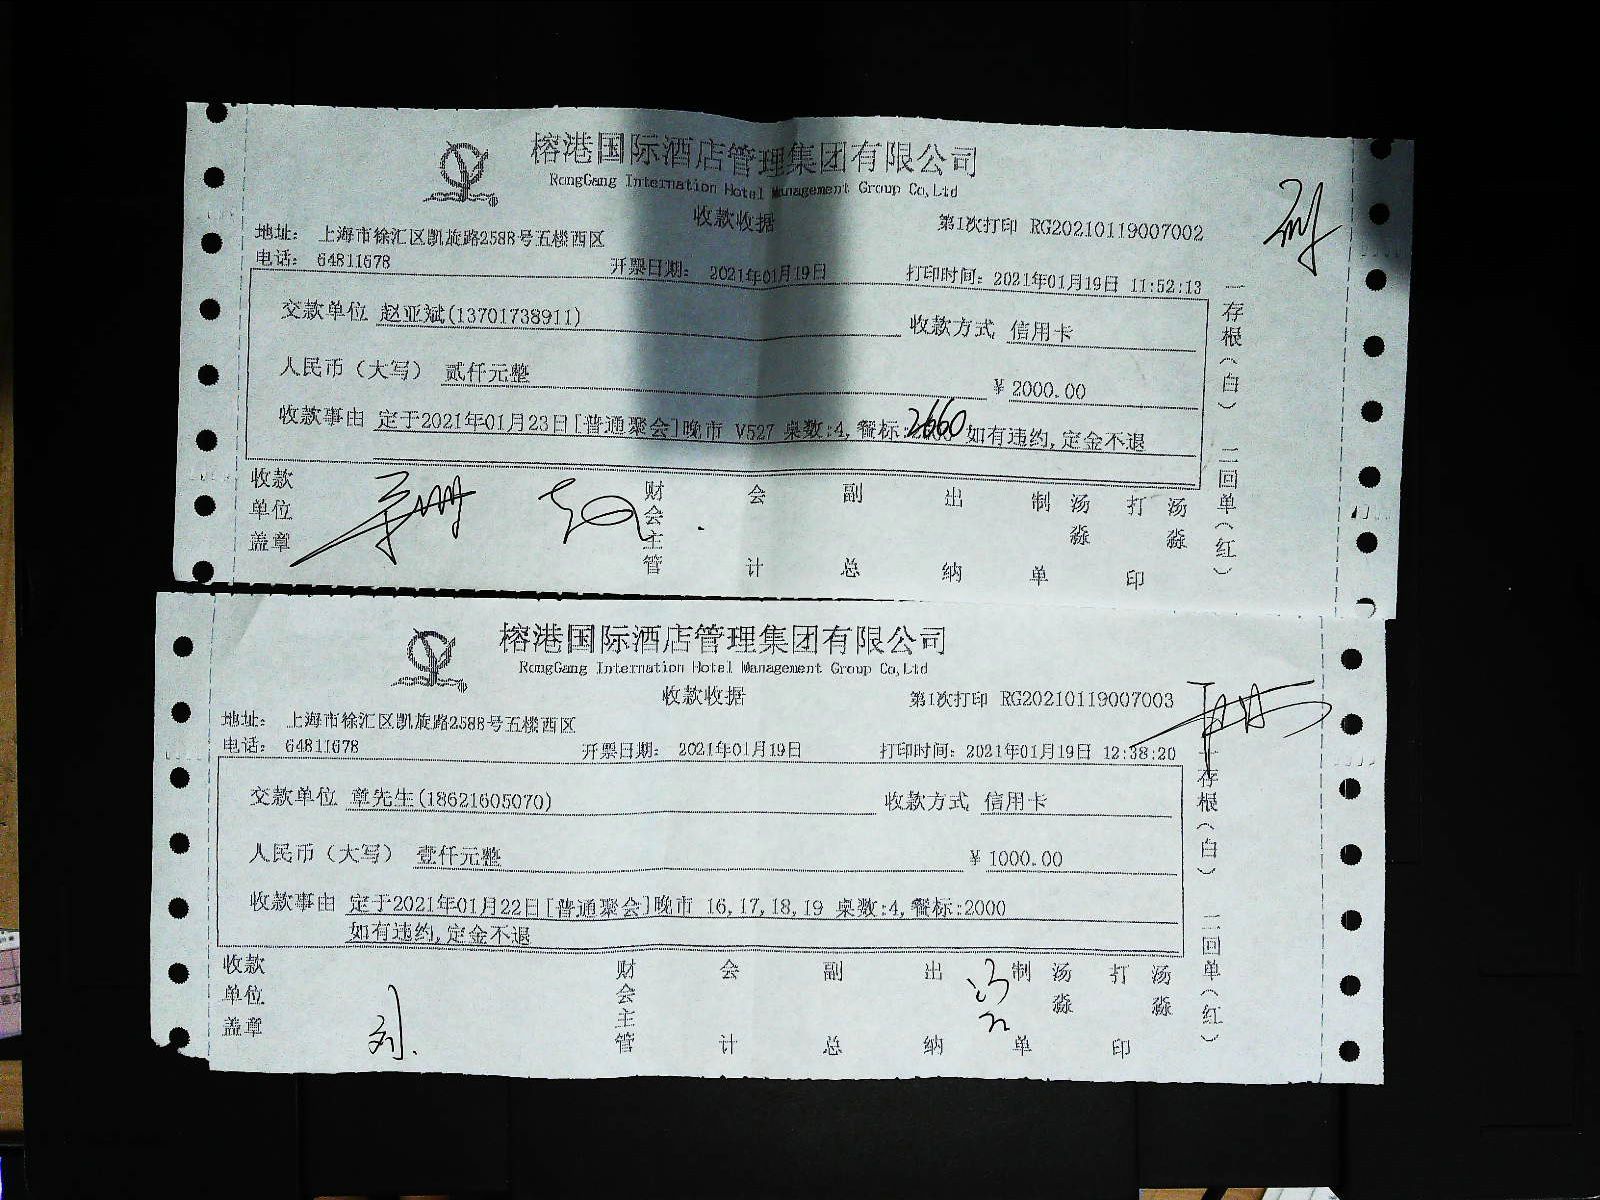 榕港国际酒店管理集团有限公司
RongGang Internation Hotel Management Group Co,Ltd
收款收据
第1次打印 RG20210119007002
地址： 上海市徐汇区凯旋路2588号五楼西区
电话： 64811678
开票日期： 2021年01月19日
打印时间：2021年01月19日 11:52:13
交款单位 赵亚斌(13701738911)
收款方式 信用卡
人民币（大写） 贰仟元整
¥ 2000.00
收款事由 定于2021年01月23日[普通聚会]晚市 V527 桌数:4,餐标:2660 如有违约,定金不退
收款单位盖章
财会主管
会计
副总
出纳
制单
汤淼
打印
汤淼
一存根（白） 二回单（红）
榕港国际酒店管理集团有限公司
RongGang Internation Hotel Management Group Co,Ltd
收款收据
第1次打印 RG20210119007003
地址： 上海市徐汇区凯旋路2588号五楼西区
电话： 64811678
开票日期： 2021年01月19日
打印时间：2021年01月19日 12:38:20
交款单位 章先生(18621605070)
收款方式 信用卡
人民币（大写） 壹仟元整
¥ 1000.00
收款事由 定于2021年01月22日[普通聚会]晚市 16,17,18,19 桌数:4,餐标:2000
如有违约,定金不退
收款单位盖章
财会主管
会计
副总
出纳
制单
汤淼
打印
汤淼
一存根（白） 二回单（红）